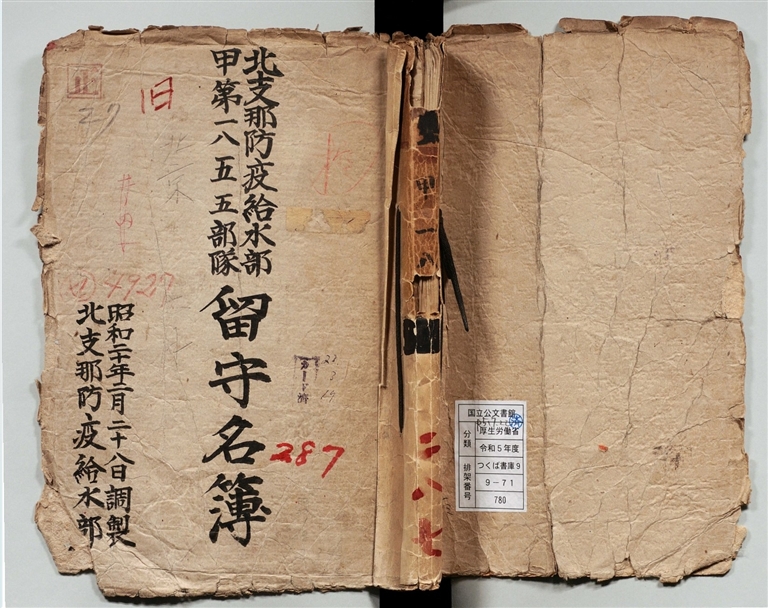 北支那防疫給水部
甲第一八五五部隊
留守名簿
昭和二十年二月二十八日調製
北支那防疫給水部
旧
287
4927
カード済
甲一八
二八七
国立公文書館
分類
厚生労働省
令和5年度
排架番号
つくば書庫9
9-71
780